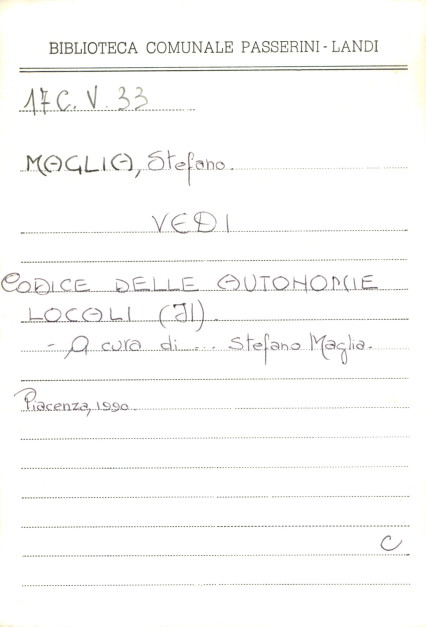 BIBLIOTECA COMUNALE PASSERINI - LANDI
17 C. V. 33
MAGLIA, Stefano.
VEDI
CODICE DELLE AUTONOMIE
LOCALI (Il).
- A cura di ... Stefano Maglia.
Piacenza, 1990.
C